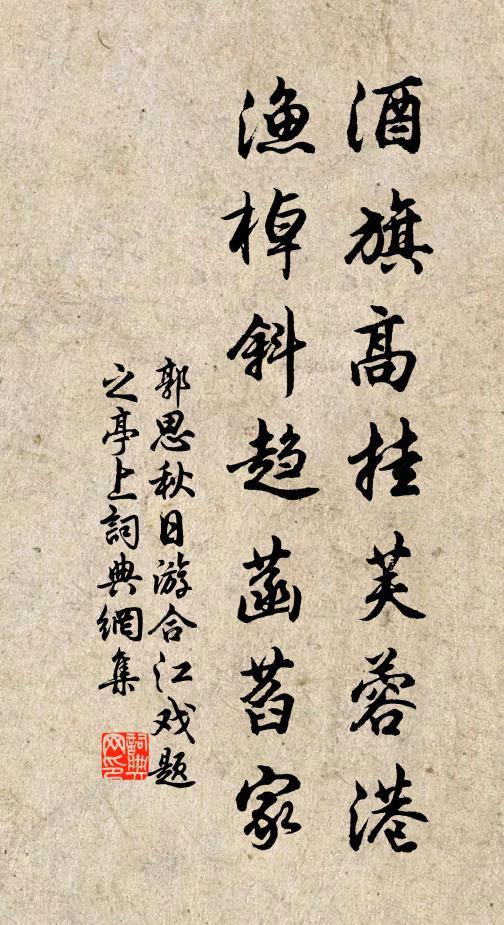 酒旗高挂芙蓉港
渔棹斜趋菡萏家
郭思秋日游合江戏题
之亭上詞典網集
詞典
网印